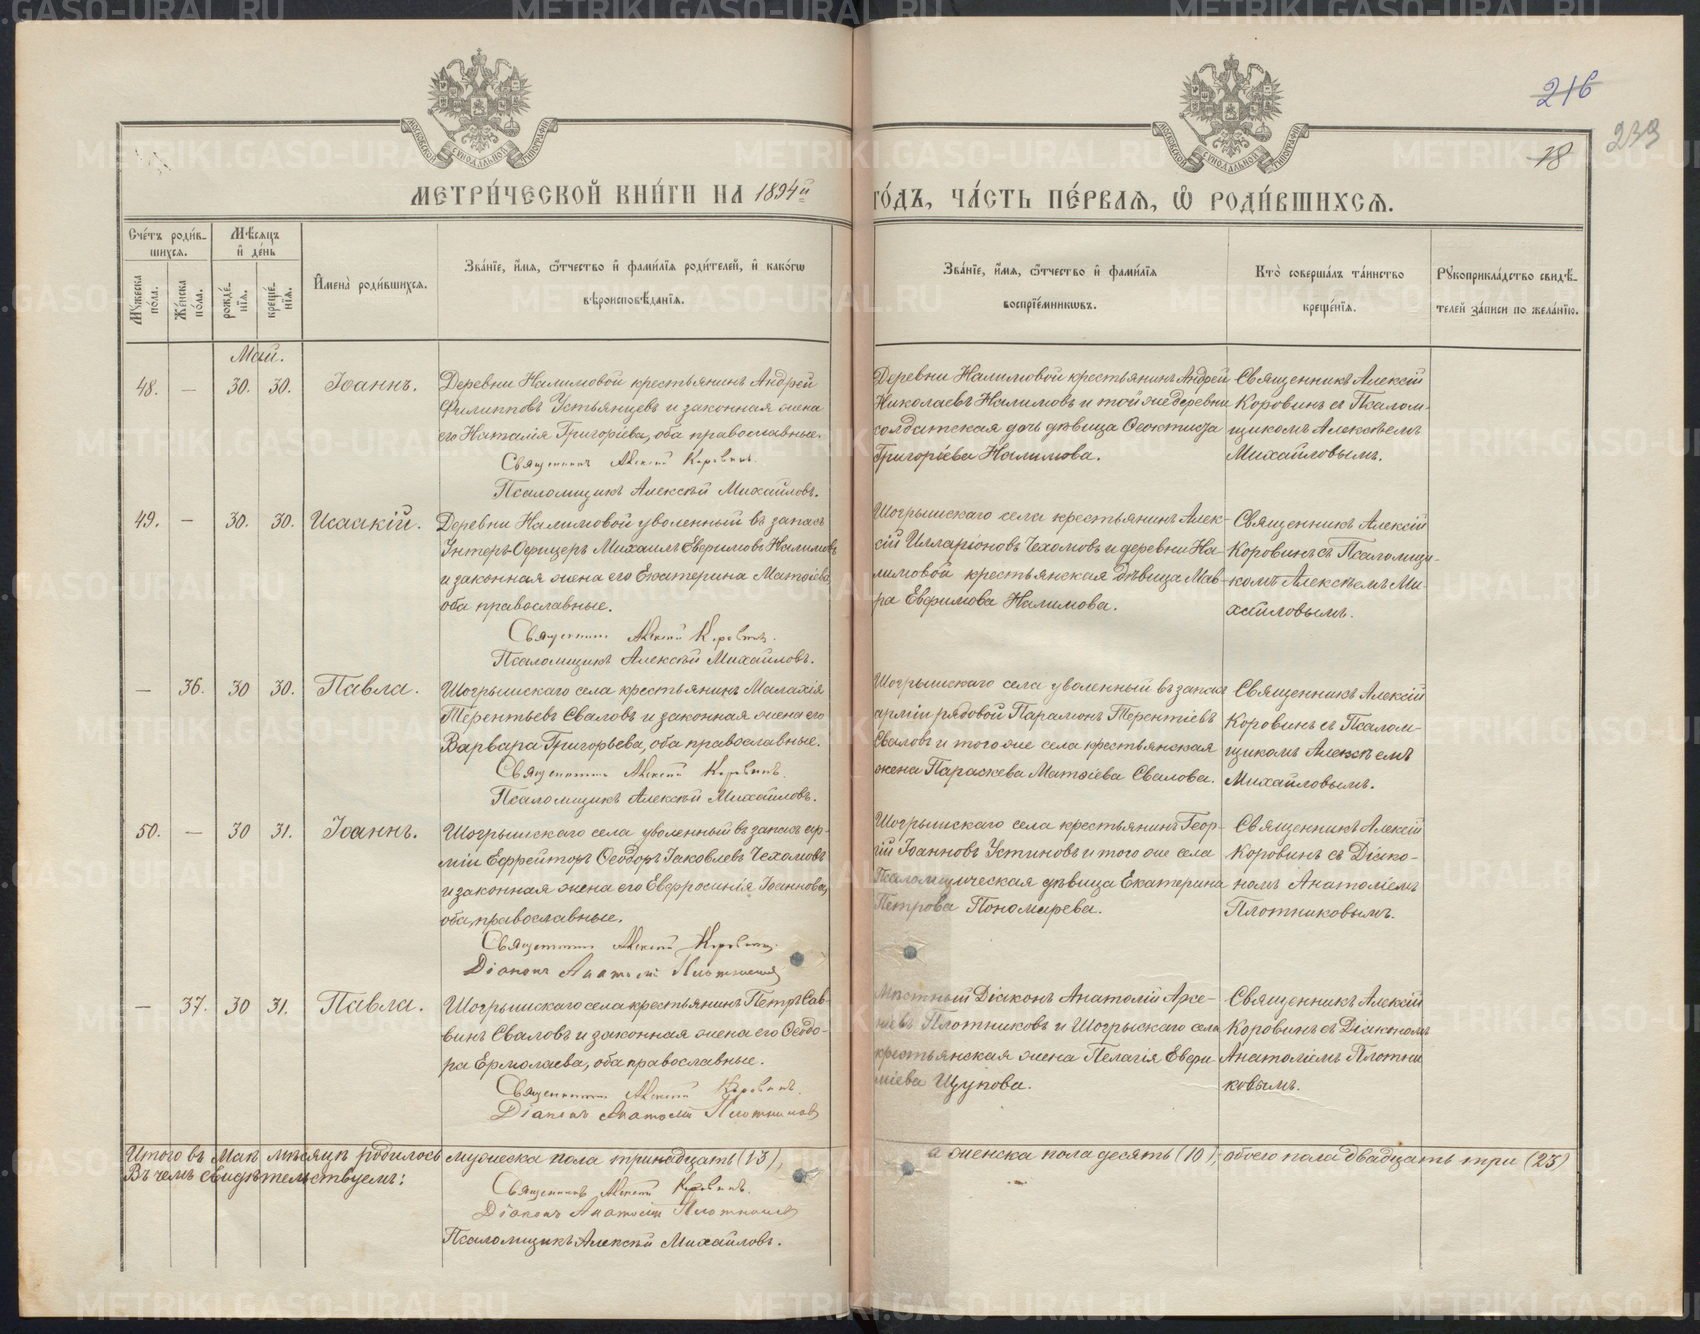 216
239
18
МЕТРИ́ЧЕСКОЙ КНИ́ГИ НА 1894й ГО́ДЪ, ЧА́СТЬ ПЕ́РВАѦ, Ѽ РОДИ́ВШИХСѦ.
Сче́тъ роди́вшихсѧ.
Му́жеска по́ла.
Же́нска по́ла.
Мѣ́сѧцъ и҆ де́нь
рожде́нїѧ.
креще́нїѧ.
И҆мена̀ роди́вшихсѧ.
Зва́нїе, и҆́мѧ, ѻ҆́тчество и҆ фами́лїѧ роди́телей, и҆ како́гѡ
вѣроисповѣ́данїѧ.
Зва́нїе, и҆́мѧ, ѻ҆́тчество и҆ фами́лїѧ
воспрїе́мникѡвъ.
Кто̀ соверша́лъ та́инство
креще́нїѧ.
Рꙋкоприкла́дство свидѣ́-
телей за́писи по жела́нїю.
Май.
48. — 30. 30. Іоаннъ.
Деревни Налимовой крестьянинъ Андрей
Филипповъ Устьянцевъ и законная жена
его Наталія Григоріева, оба православные.
Священникъ Алексій Коровинъ.
Псаломщикъ Алексѣй Михайловъ.
Деревни Налимовой крестьянинъ Андрей
Николаевъ Налимовъ и той же деревни
солдатская дочь дѣвица Ѳеоктиста
Григоріева Налимова.
Священникъ Алексій
Коровинъ съ Псалом-
щикомъ Алексѣемъ
Михайловымъ.
49. — 30. 30. Исаакій.
Деревни Налимовой уволенный въ запасъ
Унтеръ-Офицеръ Михаилъ Евфимовъ Налимовъ
и законная жена его Екатерина Матѳіева,
оба православные.
Священникъ Алексій Коровинъ.
Псаломщикъ Алексѣй Михайловъ.
Шогрышскаго села крестьянинъ Алек-
сій Илларіоновъ Чехомовъ и деревни На-
лимовой крестьянская дѣвица Мав-
ра Евфимова Налимова.
Священникъ Алексій
Коровинъ съ Псаломщи-
комъ Алексѣемъ Ми-
хайловымъ.
— 36. 30 30. Павла.
Шогрышскаго села крестьянинъ Малахія
Терентьевъ Сваловъ и законная жена его
Варвара Григорьева, оба православные.
Священникъ Алексій Коровинъ.
Псаломщикъ Алексѣй Михайловъ.
Шогрышскаго села уволенный въ запасъ
арміи рядовой Парамонъ Терентіевъ
Сваловъ и того же села крестьянская
жена Параскева Матѳіева Свалова.
Священникъ Алексій
Коровинъ съ Псалом-
щикомъ Алексѣемъ
Михайловымъ.
50. — 30 31. Іоаннъ.
Шогрышскаго села уволенный въ запасъ ар-
міи Ефрейторъ Ѳеодоръ Іаковлевъ Чехомовъ
и законная жена его Евфросинія Іоаннова,
оба православные.
Священникъ Алексій Коровинъ.
Діаконъ Анатолій Плотниковъ
Шогрышскаго села крестьянинъ Геор-
гій Іоанновъ Устиновъ и того же села
Псаломщическая дѣвица Екатерина
Петрова Пономарева.
Священникъ Алексій
Коровинъ съ Діако-
номъ Анатоліемъ
Плотниковымъ.
— 37. 30 31. Павла.
Шогрышскаго села крестьянинъ Петръ Сав-
винъ Сваловъ и законная жена его Ѳеодо-
ра Ермолаева, оба православные.
Священникъ Алексій Коровинъ.
Діаконъ Анатолій Плотниковъ
Мѣстный Діаконъ Анатолій Арсе-
ніевъ Плотниковъ и Шогрыскаго села
крестьянская жена Пелагія Евфи-
міева Щупова.
Священникъ Алексій
Коровинъ съ Діакономъ
Анатоліемъ Плотни
ковымъ.
Итого въ Маѣ мѣсяцѣ родилось мужеска пола тринадцать (13), а женска пола десять (10); обоего пола двадцать три (23)
Въ чемъ свидѣтельствуемъ:
Священникъ Алексій Коровинъ.
Діаконъ Анатолій Плотниковъ
Псаломщикъ Алексѣй Михайловъ.
METRIKI.GASO-URAL.RU